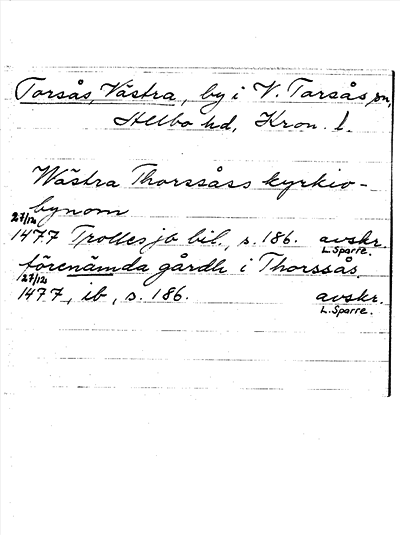 Torsås, Västra, by i V. Torsås sn,
Allbo hd, Kron. l.
Wästra Thorssåss kyrkio-
bynom
27/12
1477 Trolles jb bil., s. 186. avskr.
L. Sparre.
förenämda gårdh i Thorssås
27/12
1477, ib, s. 186. avskr.
L. Sparre.